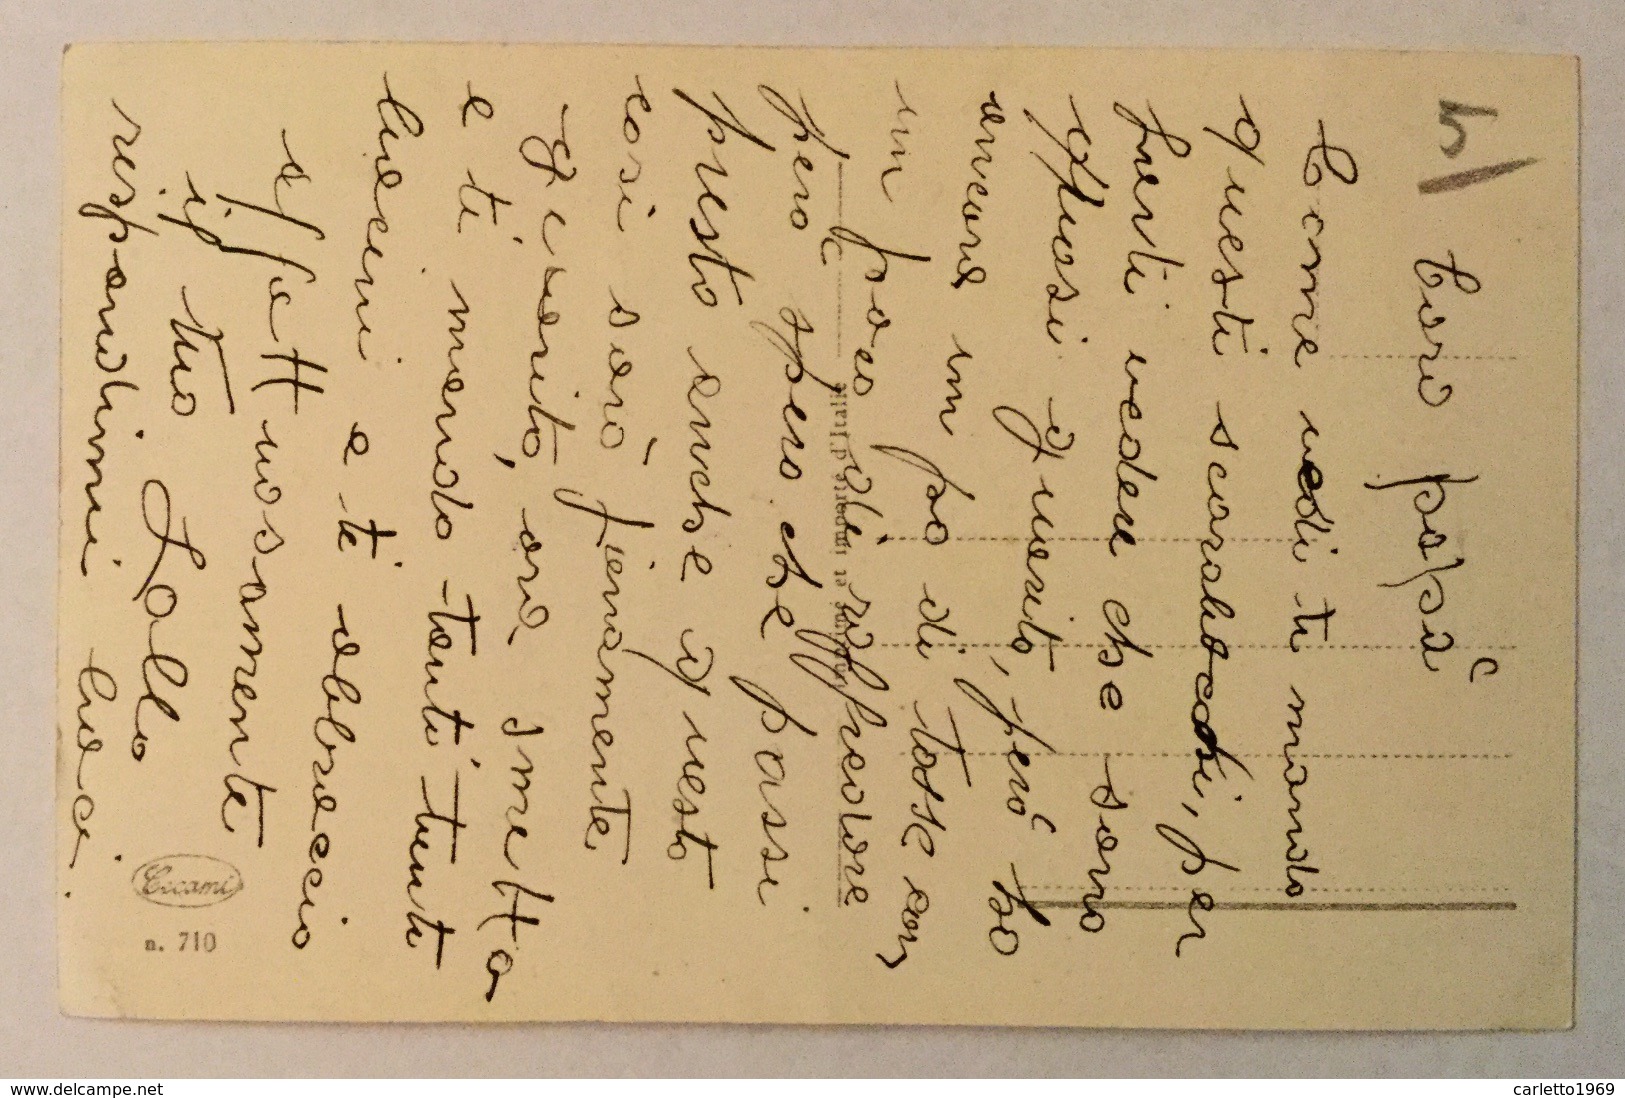 h/
Caro papà
Come vedi ti mando
questi scarabocchi, per
farti vedere che sono
quasi guarito, però ho
ancora un po di tosse con
un poco di raffreddore
però spero che passi
presto anche questo
così sarò pienamente
guarito, ora smetto
e ti mando tanti tanti
bacini e ti abbraccio
affettuosamente
il tuo Lallo
rispondimi baci.
Cecami
n. 710
www.delcampe.net
carletto1969